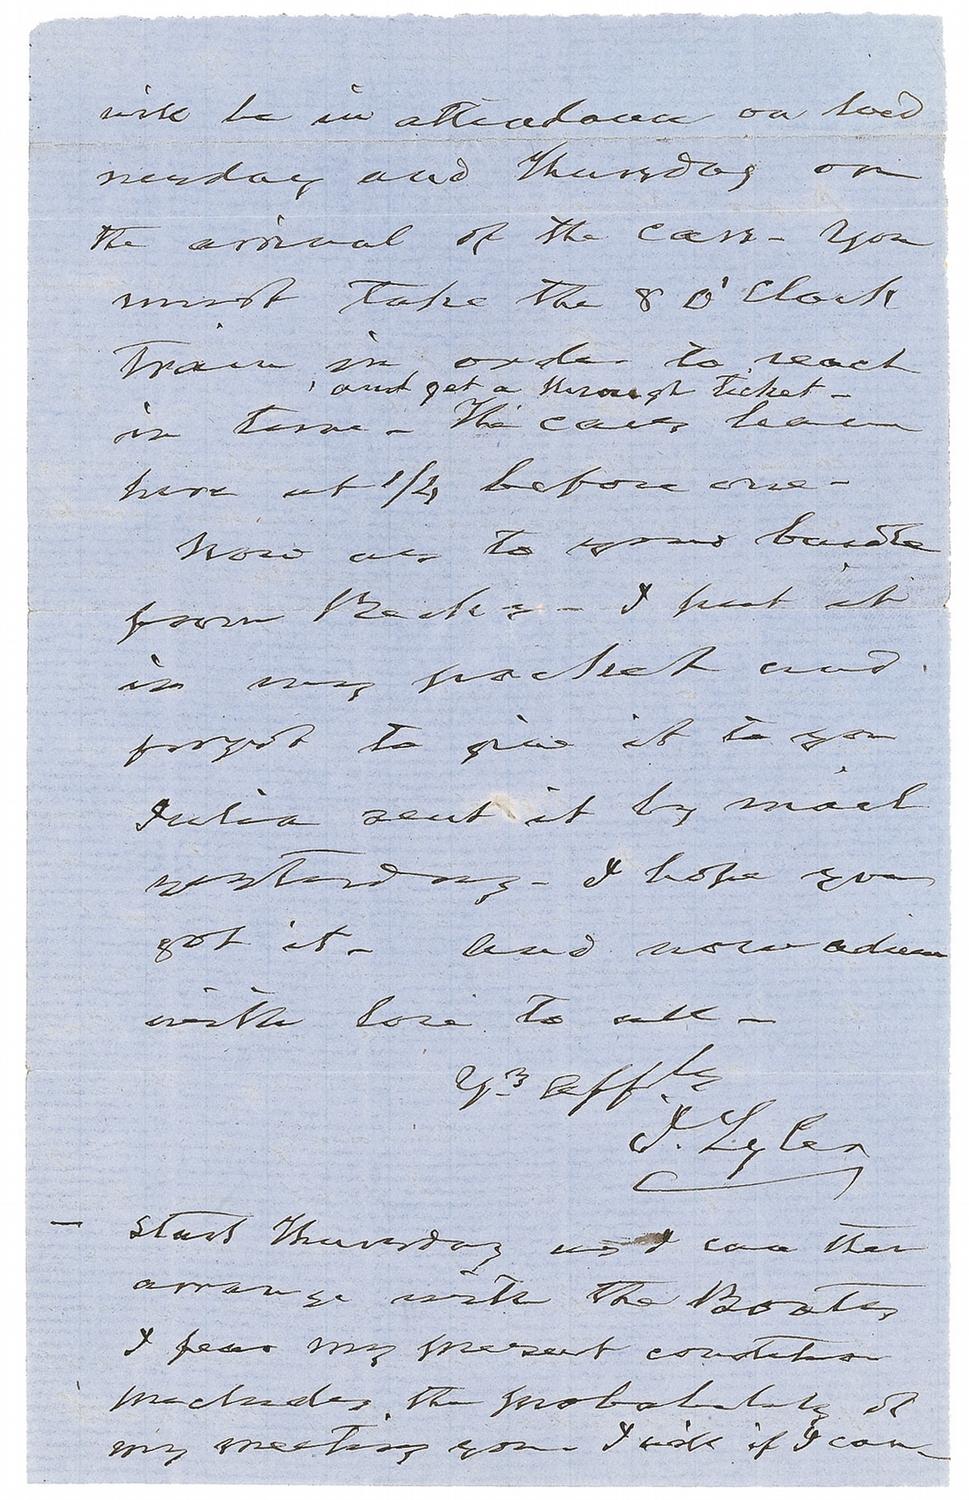 will be in attendance on Wed
nesday and Thursday on
the arrival of the cars - You
must take the 8 O'Clock
Train in order to reach
, and get a through ticket -
in time - The cars leave
here at 1/2 before one -
Now as to your bundle
from Becky - I put it
in my pocket and
forgot to give it to you
Julia sent it by mail
yesterday - I hope you
got it - And now adieu
with love to all -
Yrs Afftly
J. Tyler
- Start Thursday as I can then
arrange with the Boats,
I fear my present condition
precludes the probability of
my meeting you - I will if I can -